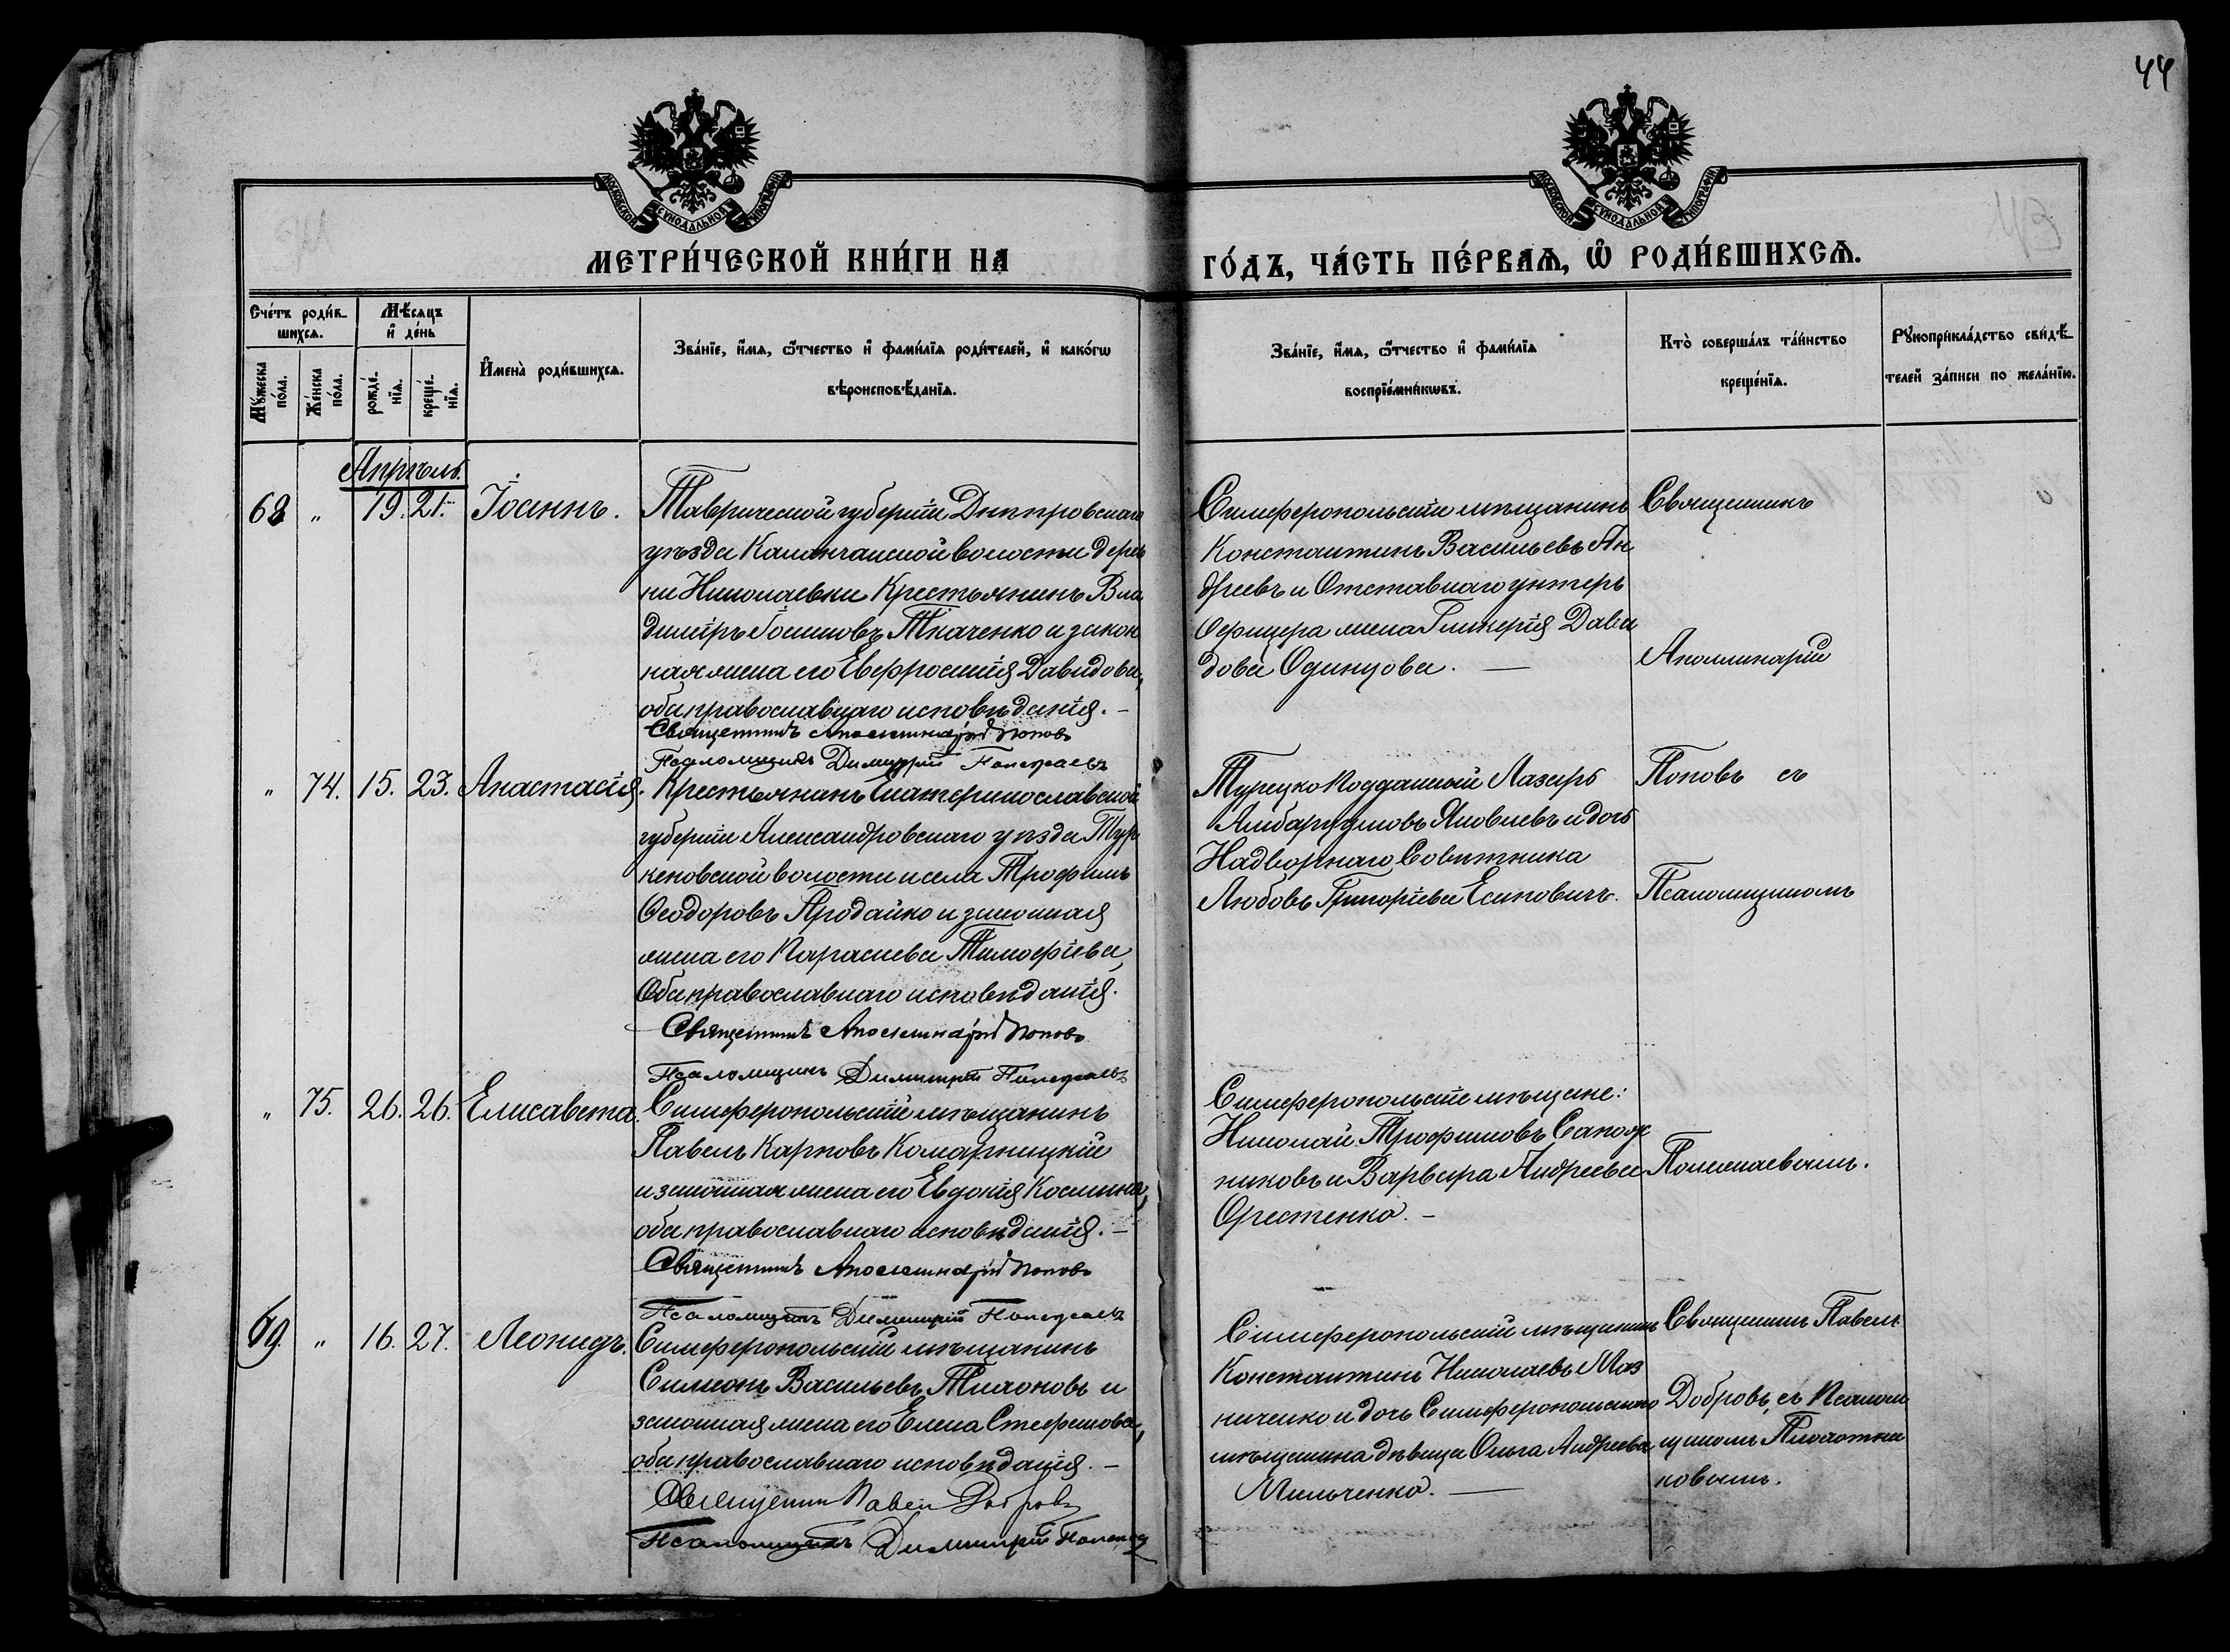 44
МОСКОВСКОЙ СУНОДАЛЬНОЙ ТИПОГРАФІИ
МОСКОВСКОЙ СУНОДАЛЬНОЙ ТИПОГРАФІИ
МЕТРИ́ЧЕСКОЙ КНИ́ГИ НА
ГО́ДЪ, ЧА́СТЬ ПЕ́РВАѦ, Ѡ҆ РОДИ́ВШИХСѦ.
Сче́тъ роди́в-
шихсѧ.
Мꙋ́жеска по́ла.
Же́нска по́ла.
Мѣ́сѧцъ
и҆ де́нь
рожде́-
нїѧ.
креще́-
нїѧ.
И҆мена̀ роди́вшихсѧ.
Зва́нїе, и҆́мѧ, ѻ҆́тчество и҆ фами́лїѧ роди́телей, и҆ како́гѡ
вѣроисповѣ́данїѧ.
Зва́нїе, и҆́мѧ, ѻ҆́тчество и҆ фами́лїѧ
воспрїе́мникѡвъ.
Кто̀ соверша́лъ та́инство
креще́нїѧ.
Рꙋкоприкла́дство свидѣ́-
телей за́писи по жела́нїю.
Апрѣль.
68 " 19. 21. Іоаннъ.
Таврической губерніи Днѣпровскаго
уѣзда Каланчакской волости дерев
ни Николаевки Крестьянинъ Вла
диміръ Ткаченко и закон
ная жена его Евфросинія Давидова,
оба православнаго исповѣданія. —
Священникъ Аполлинарій Поповъ
Псаломщикъ Димитрій Полежаевъ
Симферопольскій мѣщанинъ
Константинъ Васильевъ Ан
дреевъ и Отставнаго унтеръ
Офицера жена Гликерія Дави
дова Одинцова. —
Священникъ
Аполлинарій
" 74. 15. 23. Анастасія.
Крестьянинъ Екатеринославской
губерніи Александровскаго уѣзда Тур
кеновской волости и села Трофимъ
Ѳеодоровъ Продайко и законная
жена его Параскева Тимофіева,
Оба православнаго исповѣданія.
Священникъ Аполлинарій Поповъ
Псаломщикъ Димитрій Полежаевъ
Турецко Подданный Лазарь
Яковлевъ и дочь
Надворнаго Совѣтника
Любовь Григоріева Есиповичъ.
Поповъ съ
Псаломщикомъ
" 75. 26. 26. Елисавета.
Симферопольскій мѣщанинъ
Павелъ Карповъ Комарницкій
и законная жена его Евдокія Космина,
оба православнаго исповѣданія. —
Священникъ Аполлинарій Поповъ
Псаломщикъ Димитрій Полежаевъ
Симферопольскіе мѣщане:
Николай Трофимовъ Сапож
никовъ и Варвара Андреева
Орестенко. —
Полежаевымъ.
69. " 16. 27. Леонидъ.
Симферопольскій мѣщанинъ
Симеонъ Васильевъ Тихоновъ и
законная жена его Елена Стефанова,
оба православнаго исповѣданія. —
Священник Павел Добровъ
Псаломщикъ Димитрій Полежа
Симферопольскій мѣщанинъ
Константинъ Николаевъ Маз
ниченко и дочь Симферопольскаго
мѣщанина дѣвица Ольга Андреева
Мильченко. —
Священник Павелъ
Добровъ, съ Псалом
щикомъ Плохотни
ковымъ.